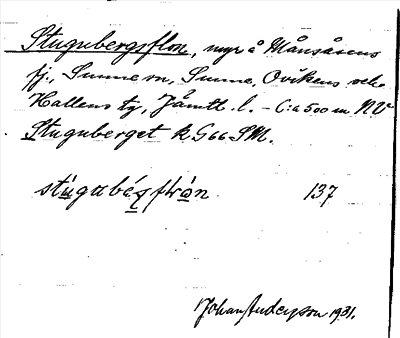 Stugubergsflon, myr å Månsåsens
fj., Sunne sn, Sunne, Ovikens och
Hallens tg, Jämtl. l. – C:a 500 m NV
Stuguberget k. G66 SM.
137
Johan Anderson 1931.